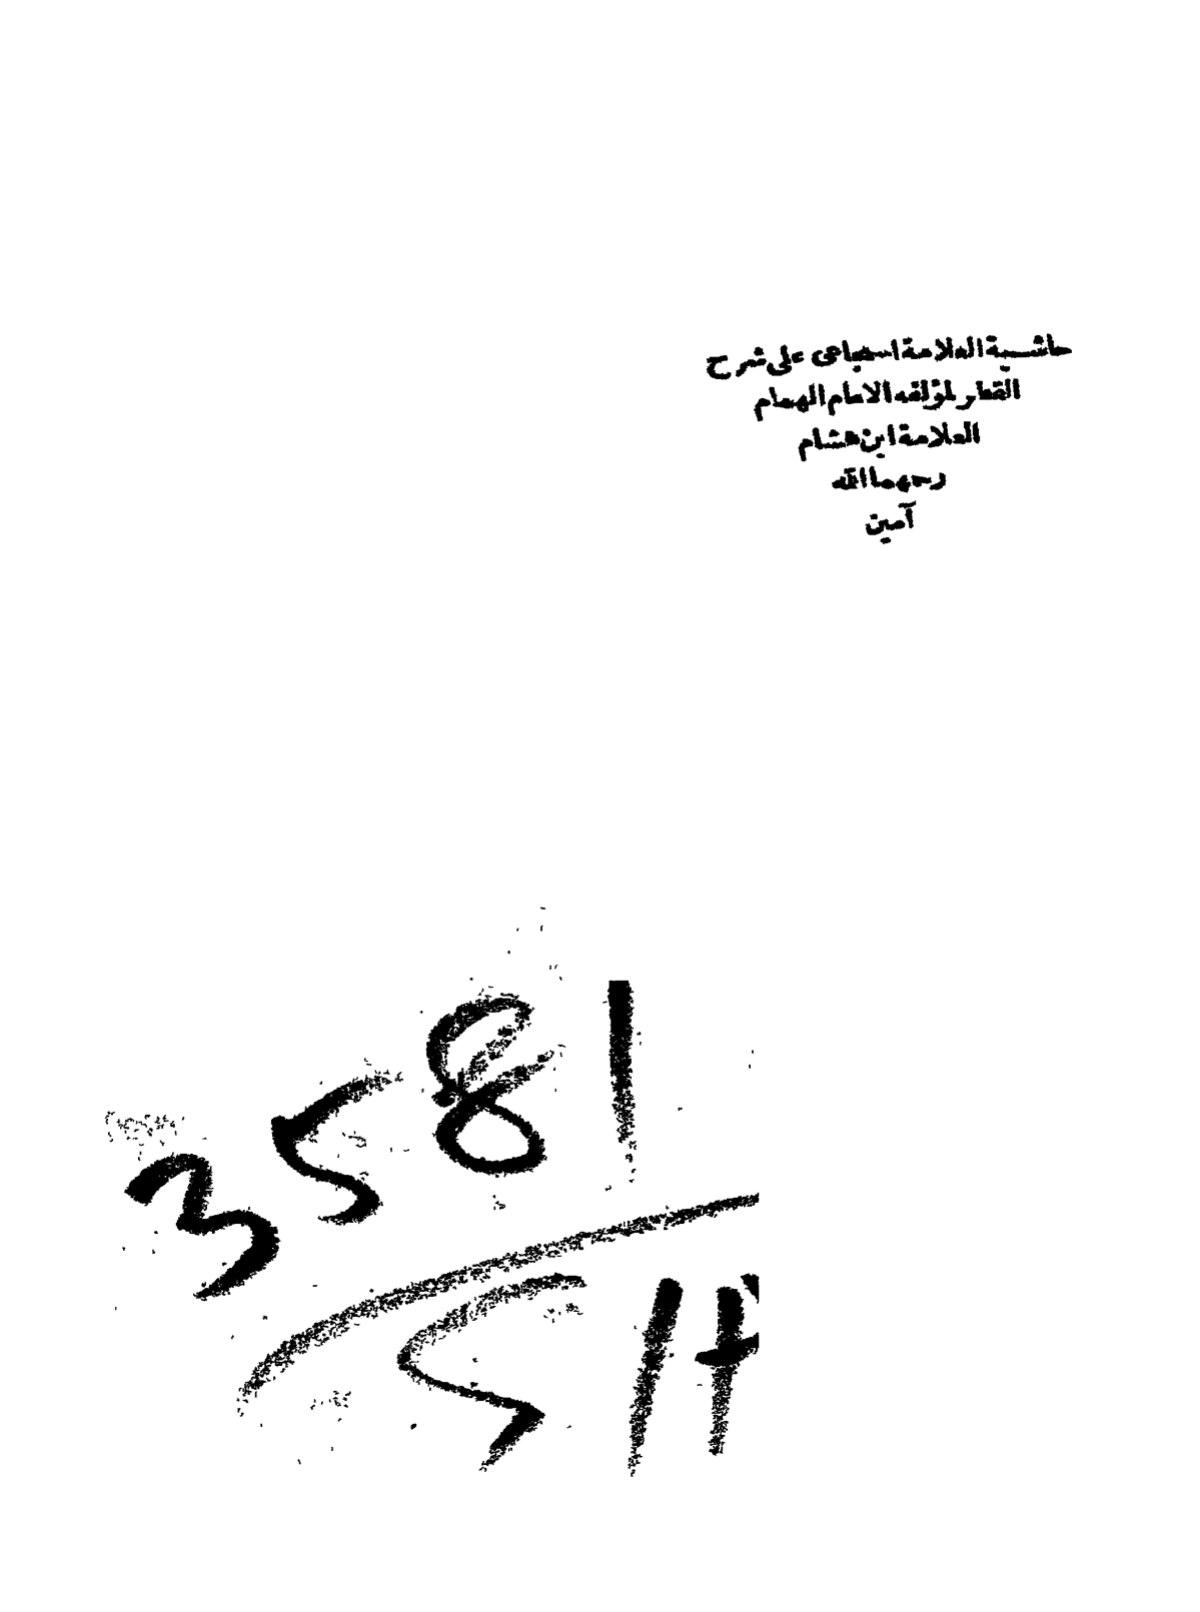 حاشية العلامة السجاعى على شرح
القطر لمؤلفه الامام الهمام
العلامة ابن هشام
رحمهما الله
آمين
3581